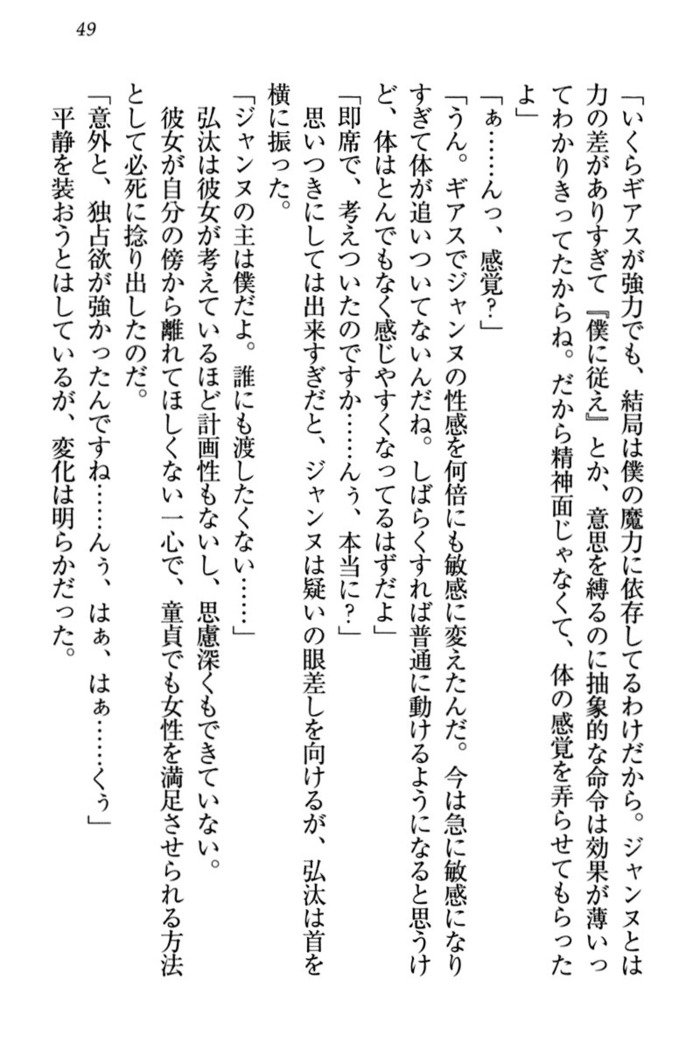 49
「いくらギアスが強力でも、結局は僕の魔力に依存してるわけだから。ジャンヌとは
力の差がありすぎて『僕に従え』とか、意思を縛るのに抽象的な命令は効果が薄いっ
てわかりきってたからね。だから精神面じゃなくて、体の感覚を弄らせてもらった
よ」
「ぁ……んっ、感覚？」
「うん。ギアスでジャンヌの性感を何倍にも敏感に変えたんだ。今は急に敏感になり
すぎて体が追いついてないんだね。しばらくすれば普通に動けるようになると思うけ
ど、体はとんでもなく感じやすくなってるはずだよ」
「即席で、考えついたのですか……んぅ、本当に？」
思いつきにしては出来すぎだと、ジャンヌは疑いの眼差しを向けるが、弘汰は首を
横に振った。
「ジャンヌの主は僕だよ。誰にも渡したくない……」
弘汰は彼女が考えているほど計画性もないし、思慮深くもできていない。
彼女が自分の傍から離れてほしくない一心で、童貞でも女性を満足させられる方法
として必死に捻り出したのだ。
「意外と、独占欲が強かったんですね……んぅ、はぁ、はぁ……くぅ」
平静を装おうとはしているが、変化は明らかだった。